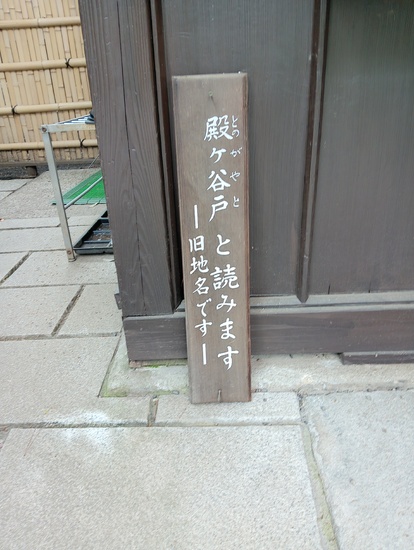 殿ヶ谷戸と読みます
とのがやと
ー旧地名ですー